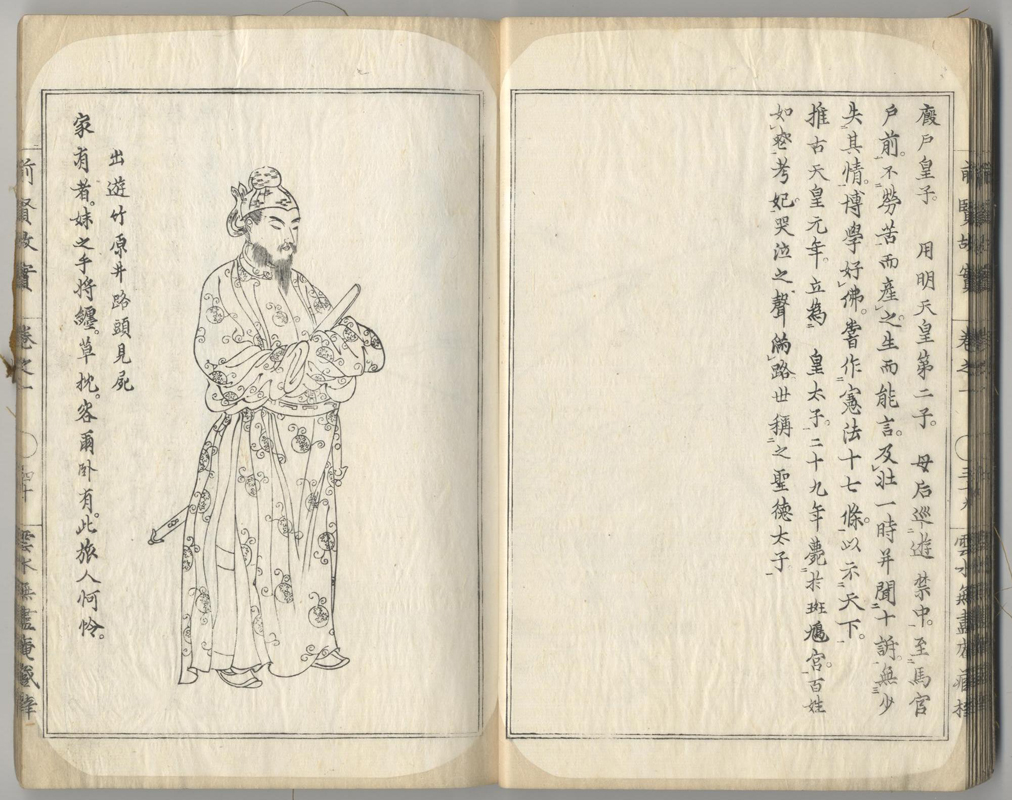 廏戸皇子。用明天皇第二子。母后巡遊禁中。至馬官
戸前。不勞苦而產之。生而能言。及壯一時并聞十訴。無少
失其情。博學好佛。嘗作憲法十七條。以示天下。
推古天皇元年。立為皇太子。二十九年薨于斑鳩宮。百姓
如喪考妣。哭泣之聲滿路世稱之聖德太子
前賢故實
卷之一
出遊竹原井路頭見死
家有者。妹之手將纏。草枕。客爾卧有。此旅人𪫧怜。
前賢故實
卷之一